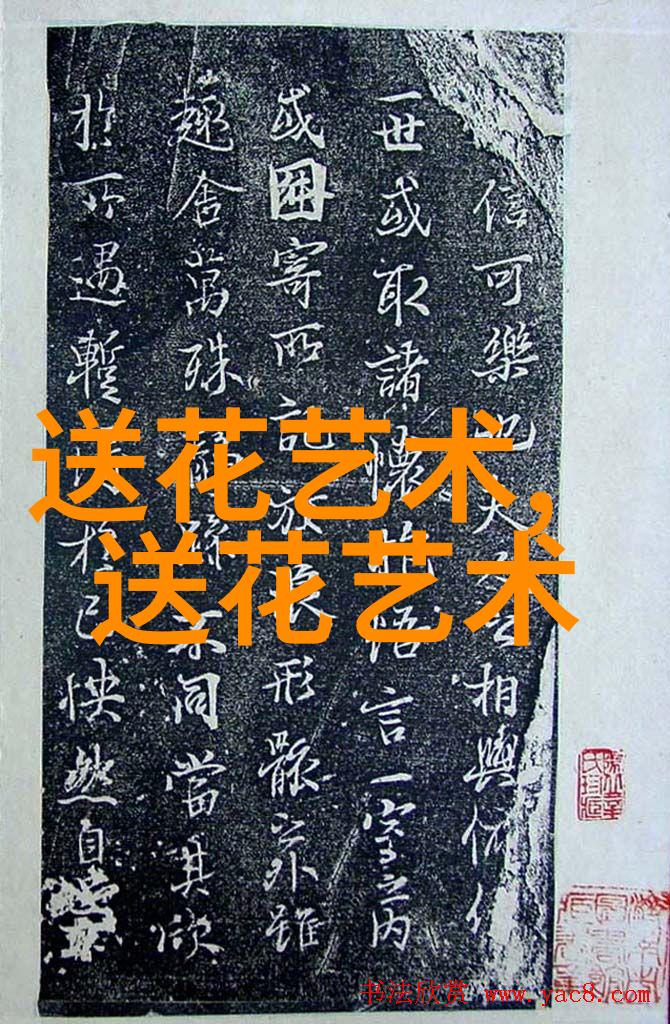 信可樂也夫人之相與俯仰
一世或取諸懷抱悟言一室之內
或因寄所託放浪形骸之外雖
趣舍萬殊靜躁不同當其欣
於所遇暫得於己怏然自
送花艺术,
送花艺术
书法欣赏 www.yac8.com